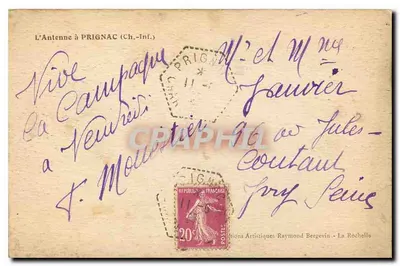 L'Antenne à PRIGNAC (Ch.-Inf.)
Vive
La Campagne
a Vendredi
PRIGNAC
Mr et Mme
Janvier
96 av Jules-
Coutant
Ivry Seine
CPArama
RÉPUBLIQUE FRANÇAISE
20c
POSTES
Artistiques Raymond Bergevin - La Rochelle